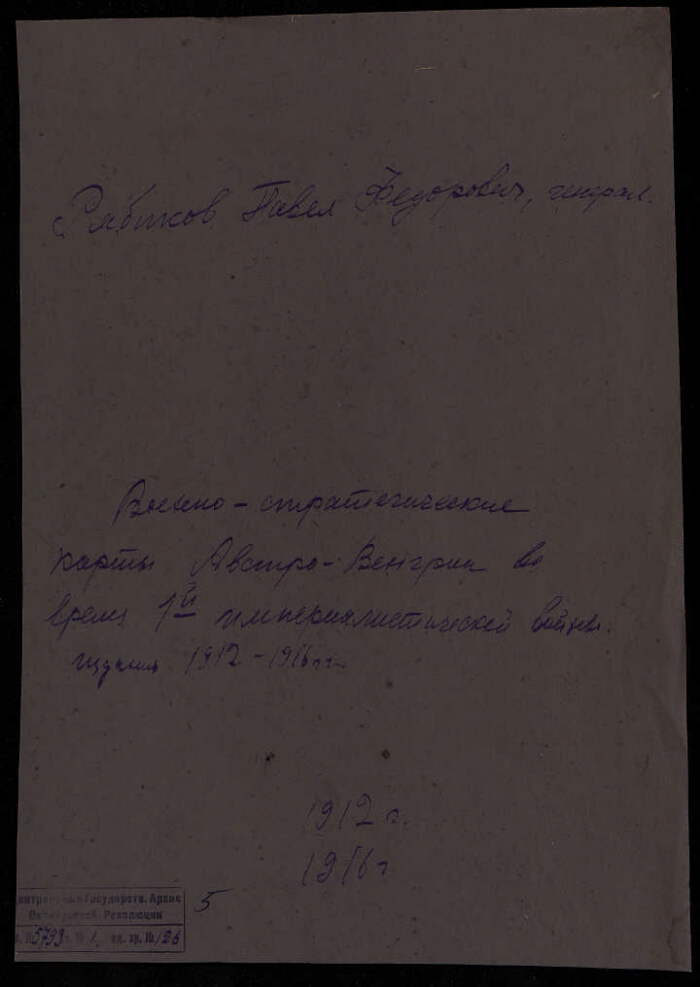 Рябиков Павел Федорович, генерал.
Военно-стратегические
карты Австро-Венгрии во
время 1й империалистической войны.
издания 1912-1916 гг.
1912 г.
1916 г
5
Центральный Государств. Архив
Октябрьской Революции
№ 5793 № 1, ед. хр. № 126